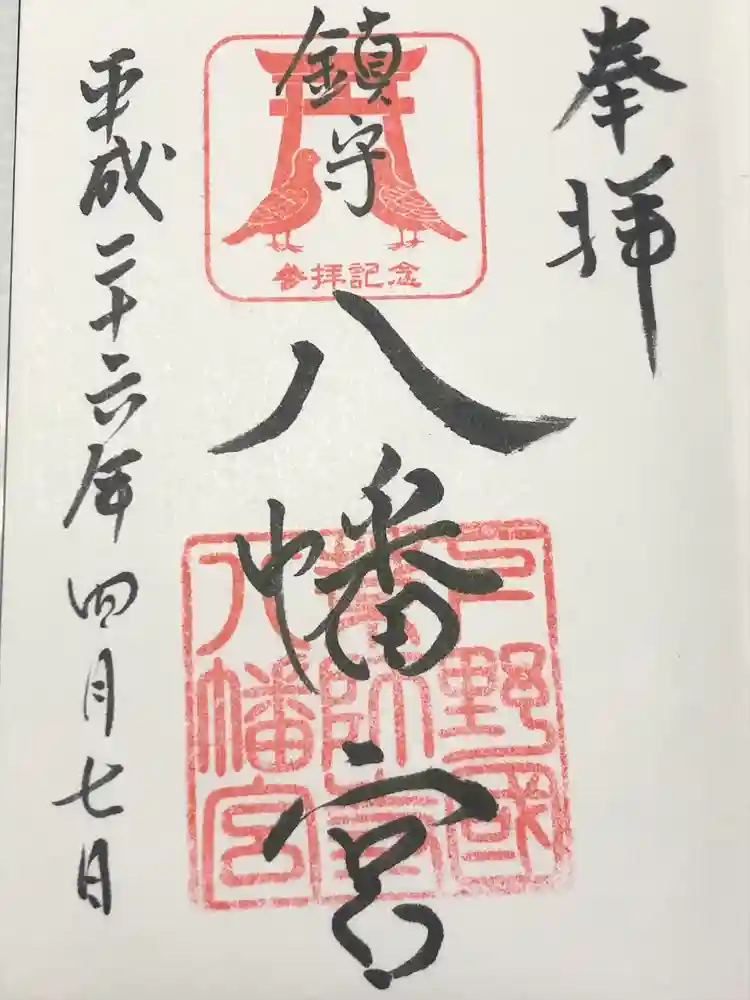 奉拝
鎮守
八幡宮
参拝記念
野國
八幡宮
平成二十六年四月七日